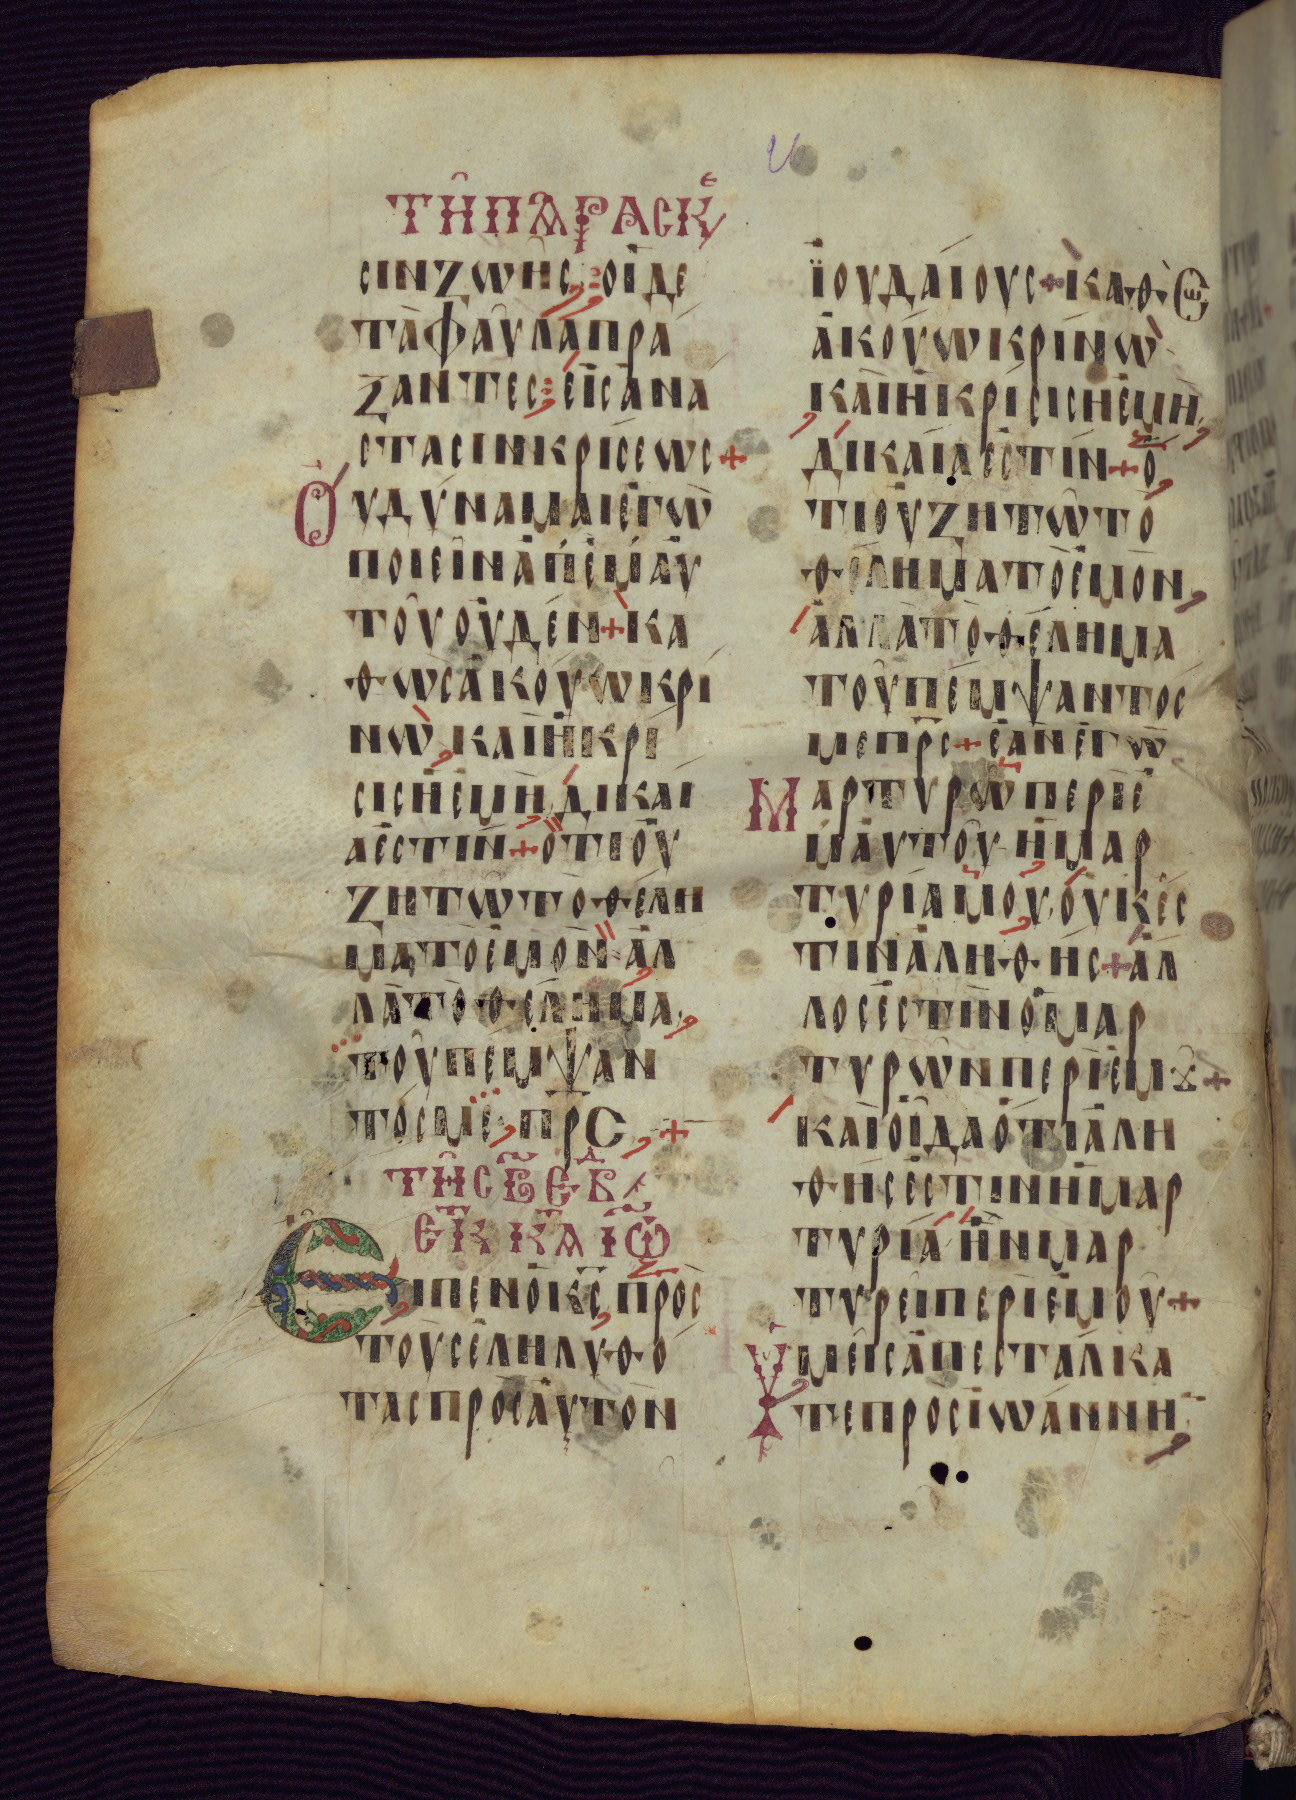 ΤΗ ΠΑΡΑΣΚΕ
ΣΙΝ ΖΩΗΣ· ΟΙ ΔΕ
ΤΑ ΦΑΥΛΑ ΠΡΑ
ΞΑΝΤΕΣ· ΕΙΣ ΑΝΑ
ΣΤΑΣΙΝ ΚΡΙΣΕΩΣ +
ΟΥ ΔΥΝΑΜΑΙ ΕΓΩ
ΠΟΙΕΙΝ ΑΠ ΕΜΑΥ
ΤΟΥ ΟΥΔΕΝ + ΚΑ
ΘΩΣ ΑΚΟΥΩ ΚΡΙ
ΝΩ, ΚΑΙ Η ΚΡΙ
ΣΙΣ Η ΕΜΗ, ΔΙΚΑΙ
Α ΕΣΤΙΝ + ΟΤΙ ΟΥ
ΖΗΤΩ ΤΟ ΘΕΛΗ
ΜΑ ΤΟ ΕΜΟΝ ΑΛ
ΛΑ ΤΟ ΘΕΛΗΜΑ,
ΤΟΥ ΠΕΜΨΑΝ
ΤΟΣ ΜΕ, ΠΡΣ, +
ΤΗΣ Β ΕΒΔ
ΕΚ Κ ΙΩ
ΕΙΠΕΝ Ο ΚΣ ΠΡΟΣ
ΤΟΥΣ ΕΛΗΛΥΘΟ
ΤΑΣ ΠΡΟΣ ΑΥΤΟΝ
ΪΟΥΔΑΙΟΥΣ + ΚΑΘΩΣ
ΑΚΟΥΩ ΚΡΙΝΩ
ΚΑΙ Η ΚΡΙΣΙΣ Η ΕΜΗ,
ΔΙΚΑΙΑ ΕΣΤΙΝ + Ο
ΤΙ ΟΥ ΖΗΤΩ ΤΟ
ΘΕΛΗΜΑ ΤΟ ΕΜΟΝ,
ΑΛΛΑ ΤΟ ΘΕΛΗΜΑ
ΤΟΥ ΠΕΜΨΑΝΤΟΣ
ΜΕ ΠΡΣ + ΕΑΝ ΕΓΩ
ΜΑΡΤΥΡΩ ΠΕΡΙ Ε
ΜΑΥΤΟΥ, Η ΜΑΡ
ΤΥΡΙΑ ΜΟΥ, ΟΥΚ ΕΣ
ΤΙΝ ΑΛΗΘΗΣ + ΑΛ
ΛΟΣ ΕΣΤΙΝ Ο ΜΑΡ
ΤΥΡΩΝ ΠΕΡΙ ΕΜΟΥ +
ΚΑΙ ΟΙΔΑ ΟΤΙ ΑΛΗ
ΘΗΣ ΕΣΤΙΝ Η ΜΑΡ
ΤΥΡΙΑ ΗΝ ΜΑΡ
ΤΥΡΕΙ ΠΕΡΙ ΕΜΟΥ +
ΥΜΕΙΣ ΑΠΕΣΤΑΛΚΑ
ΤΕ ΠΡΟΣ ΙΩΑΝΝΗ